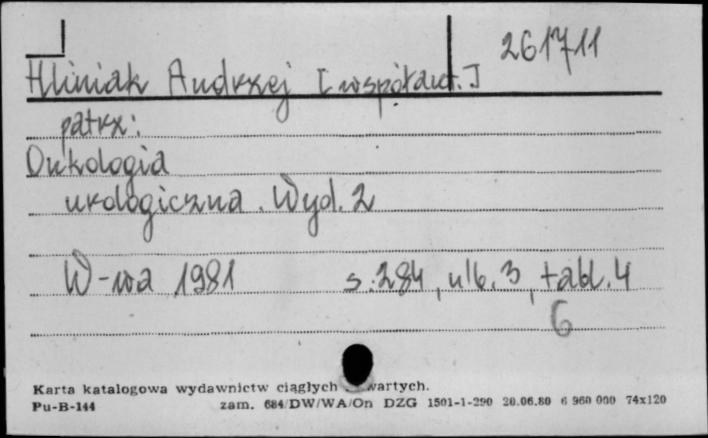 261711
Hliniak Andrzej [współaut.]
patrz:
Onkologia
urologiczna. Wyd. 2
W-wa 1981 s. 284, nlb. 3, tabl. 4
6
Karta katalogowa wydawnictw ciągłych wartych.
Pu-B-144 zam. 684/DW/WA/On DZG 1501-1-290 20.06.80 6 960 000 74x120